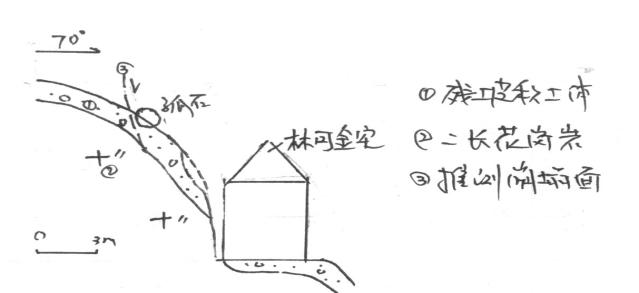 70°
③
孤石
①
林可金宅
②
0 3m
① 残坡积土体
② 二长花岗岩
③ 推测崩塌面